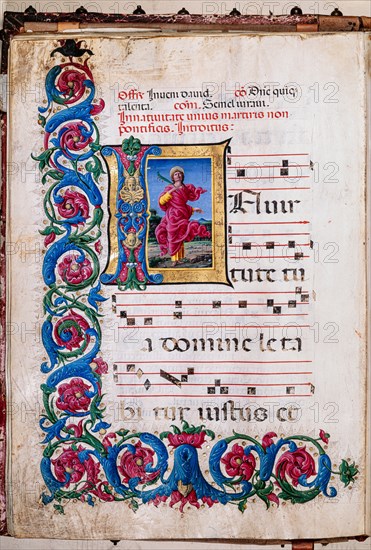 Offm Inveni david. co Dne quiq
talenta. com. Semel iuravi.
In nativitate unius martiris non
pontificis. Introitus:
In vir
tute tu
a domine leta
bi tur iustus et